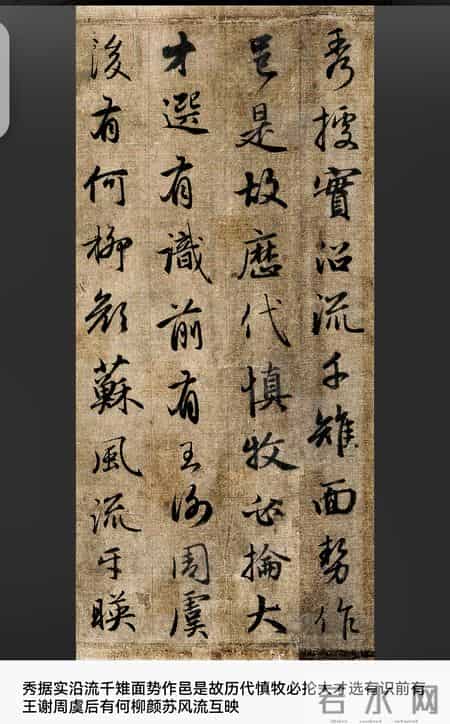 秀據實沿流千雉面勢作
邑是故歷代慎牧必掄大
才選有識前有王謝周虞
後有何柳顏蘇風流互暎
秀据实沿流千雉面势作邑是故历代慎牧必抡大才选有识前有
王谢周虞后有何柳颜苏风流互映
名水网